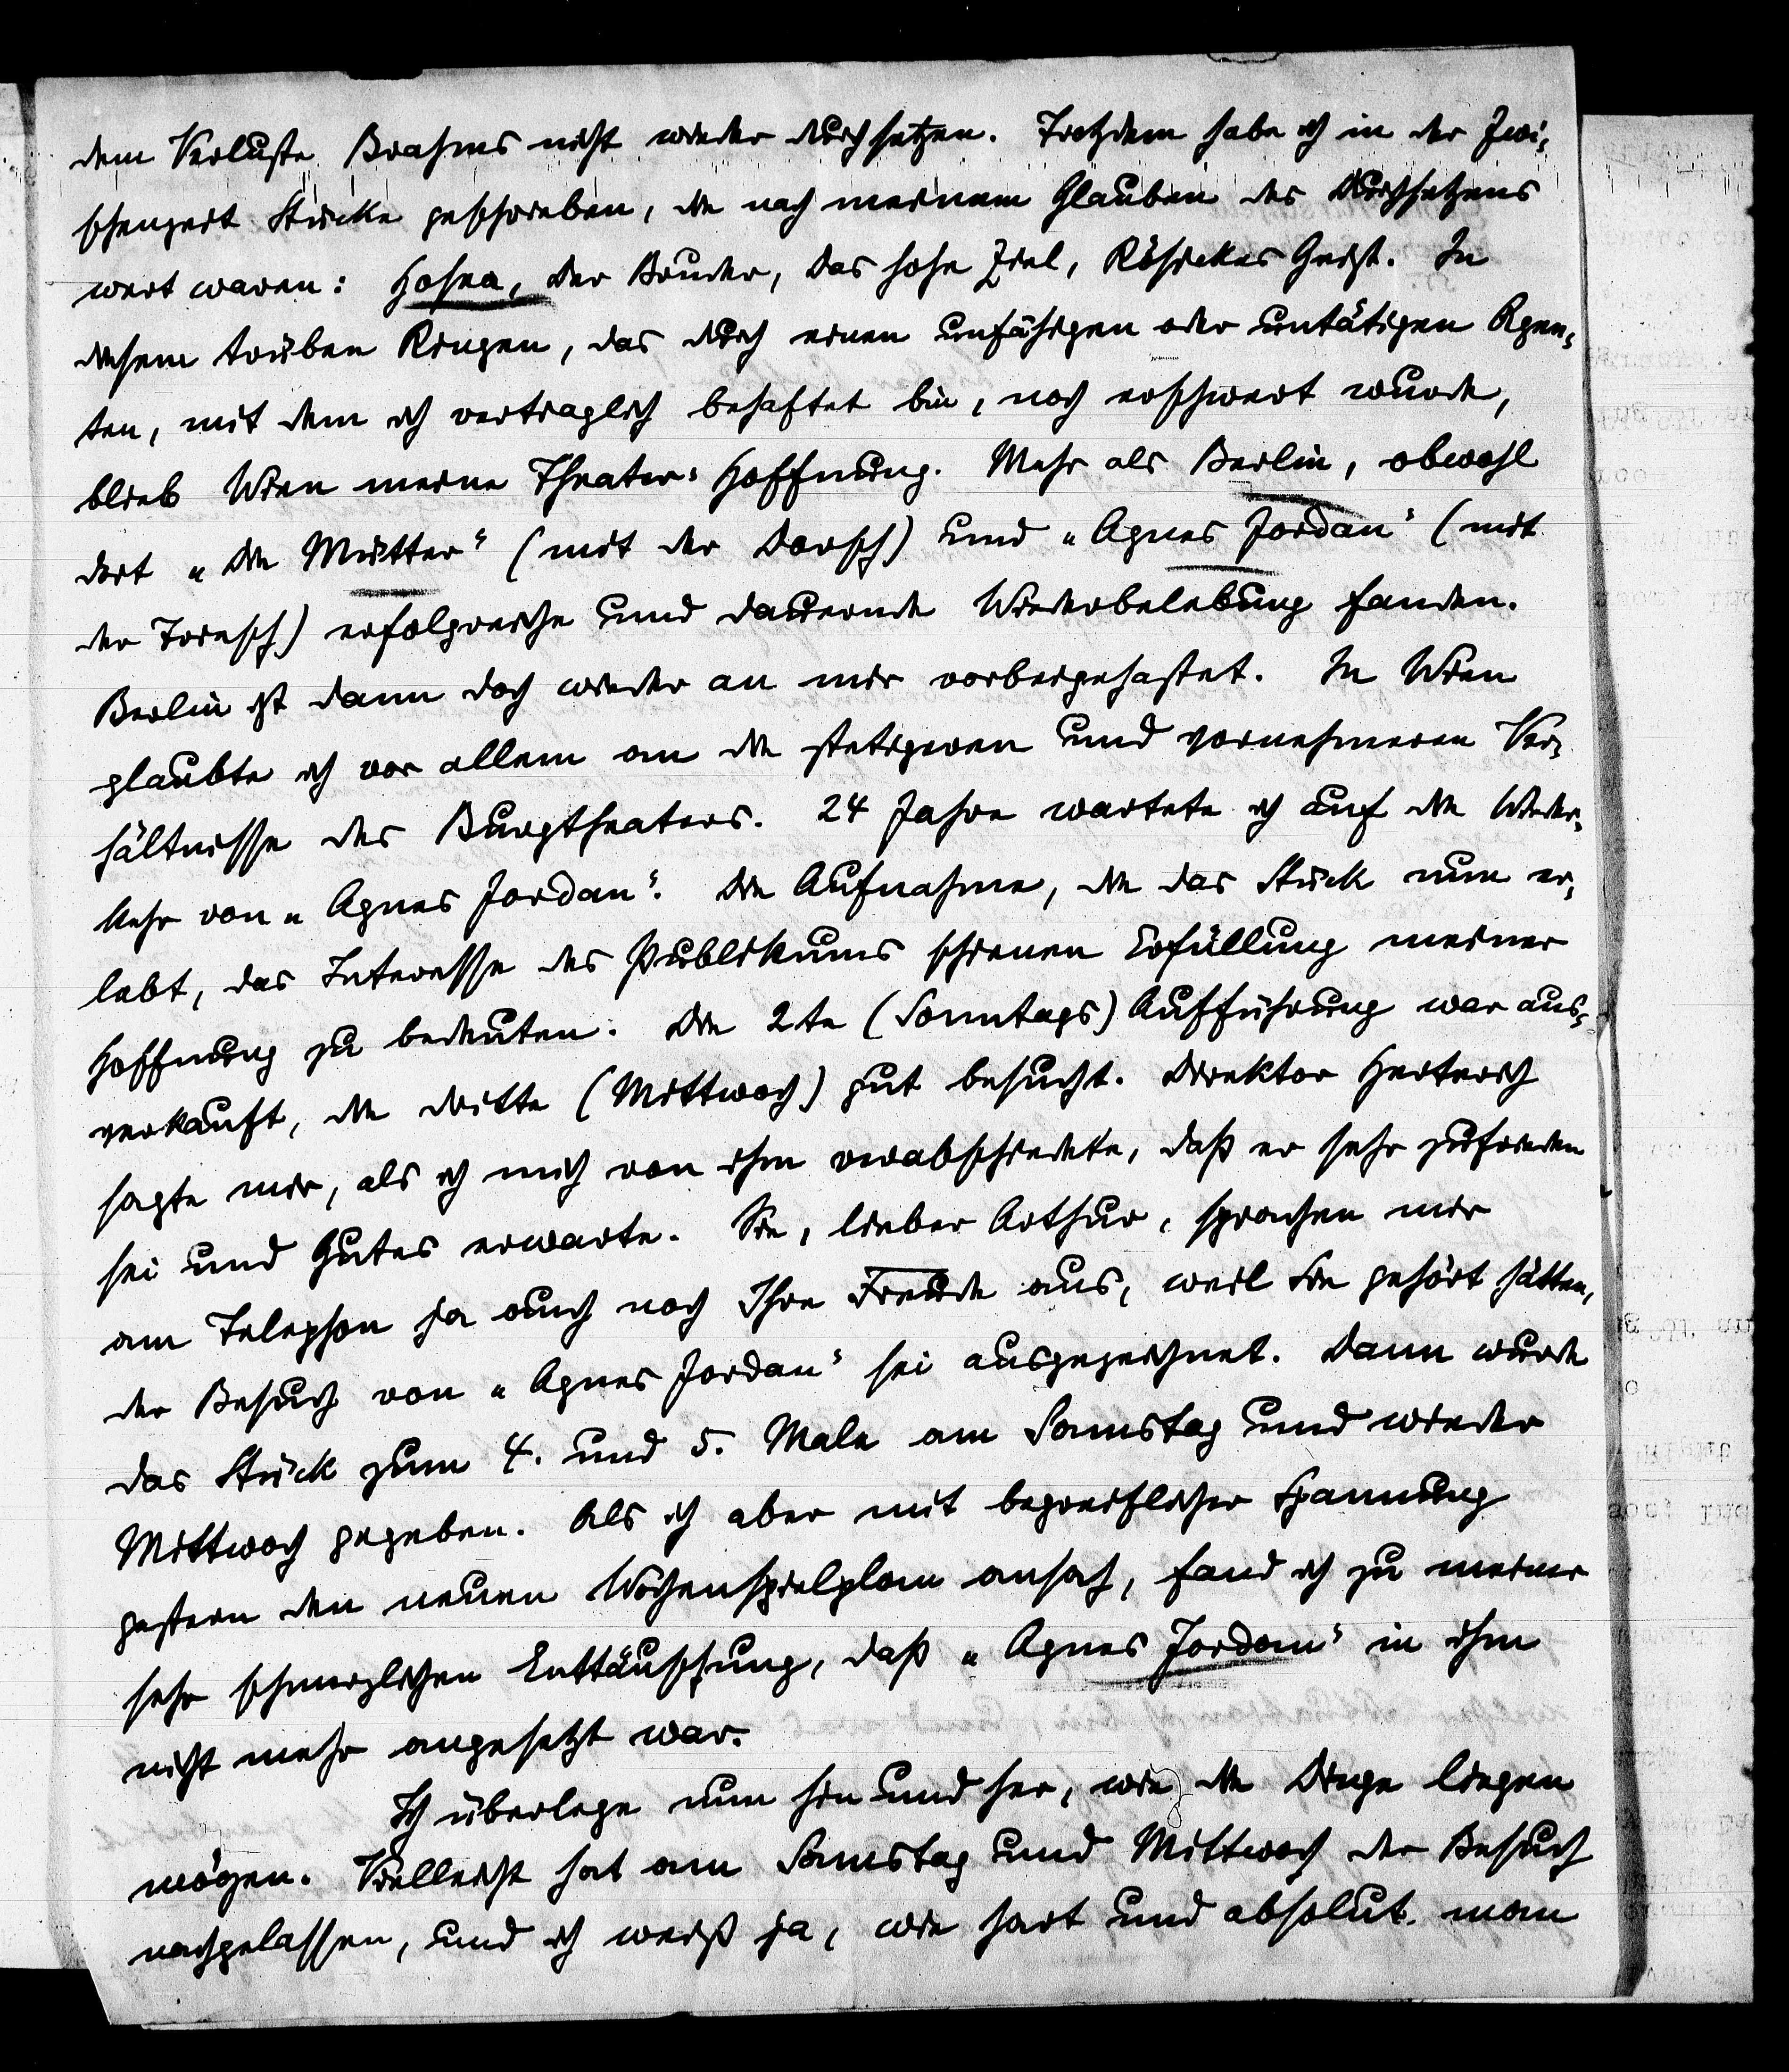 dem Verluste Brahms nicht wieder durchsetzen. Trotzdem habe ich in der Zwi-
schenzeit Stücke geschrieben, die nach meinem Glauben des Durchsetzens
wert waren: Hosea, Der Bruder, Das hohe Ziel, Rösickes Geist. In
diesem trüben Ringen, das durch einen unfähigen oder untätigen Agen-
ten, mit dem ich vertraglich behaftet bin, noch erschwert wurde,
blieb Wien meine Theater-Hoffnung. Mehr als Berlin, obwohl
dort „Die Mütter“ (mit der Dorsch) und „Agnes Jordan“ (mit
der Triesch) erfolgreiche und dauernde Wiederbelebung fanden.
Berlin ist dann doch wieder an mir vorbeigehastet. In Wien
glaubte ich vor allem an die stetigeren und vornehmeren Ver-
hältnisse des Burgtheaters. 24 Jahre wartete ich auf die Wieder-
kehr von „Agnes Jordan“. Die Aufnahme, die das Stück nun er-
lebt, das Interesse des Publikums schienen Erfüllung meiner
Hoffnung zu bedeuten. Die 2te (Sonntags) Aufführung war aus-
verkauft, die dritte (Mittwoch) gut besucht. Direktor Herterich
sagte mir, als ich mich von ihm verabschiedete, daß er sehr zufrieden
sei und Gutes erwarte. Sie, lieber Arthur, sprachen mir
am Telephon ja auch noch Ihre Freude aus, weil Sie gehört hätten,
der Besuch von „Agnes Jordan“ sei ausgezeichnet. Dann wurde
das Stück zum 4. und 5. Male am Samstag und wieder
Mittwoch gegeben. Als ich aber mit begreiflicher Spannung
gestern den neuen Wochenspielplan ansah, fand ich zu meiner
sehr schmerzlichen Enttäuschung, daß „Agnes Jordan“ in ihm
nicht mehr angesetzt war.
Ich überlege nun hin und her, wie die Dinge liegen
mögen. Vielleicht hat am Samstag und Mittwoch der Besuch
nachgelassen, und ich weiß ja, wie hart und absolut man